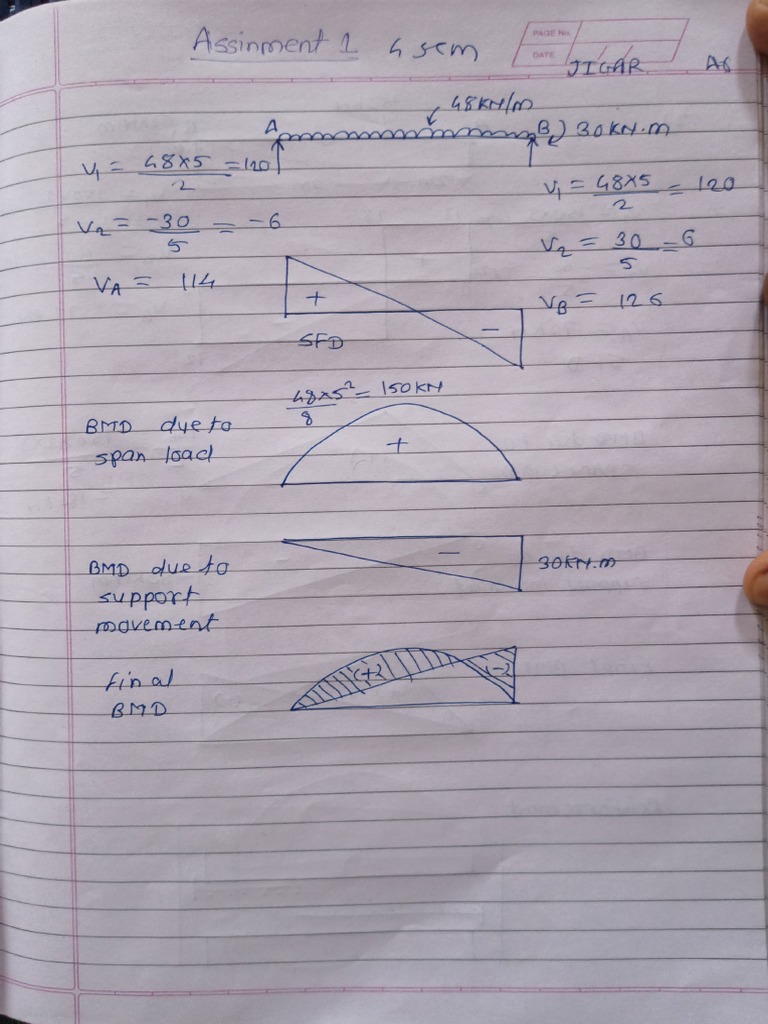 Assinment 1 4 sem
PAGE No.
DATE
JIGAR A6
48KN/m
A B 30KN.m
V1 = 48x5/2 = 120
V2 = -30/5 = -6
VA = 114
V1 = 48x5/2 = 120
V2 = 30/5 = 6
VB = 126
+
-
SFD
48x5²/8 = 150KN
BMD due to
span load
+
-
30KN.m
BMD due to
support
movement
(+)
(-)
final
BMD